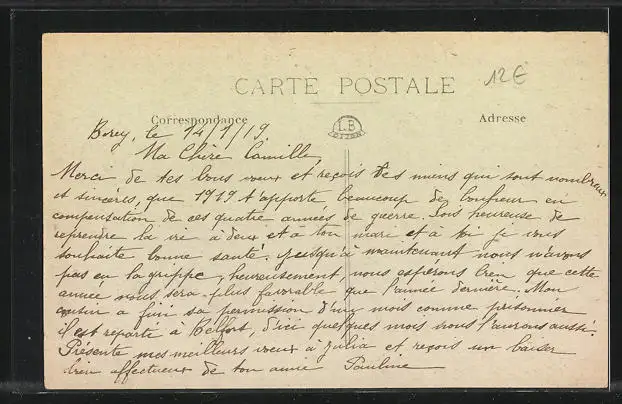 CARTE POSTALE
12€
Correspondance
Adresse
L.B
DIJON
Borey, le 14/1/19.
Ma Chère Camille,
Merci de tes bons vœux et reçois les miens qui sont nombreux
et sincères, que 1919 t'apporte beaucoup de bonheur en
compensation de ces quatre années de guerre. Sois heureuse de
reprendre la vie à deux et à ton mari et à toi je vous
souhaite bonne santé. Jusqu'à maintenant nous n'avons
pas eu la grippe, heureusement nous espérons bien que cette
année nous sera plus favorable que l'année dernière. Mon
cousin a fini sa permission d'un mois comme prisonnier
il est reparti à Belfort, d'ici quelques mois nous l'aurons aussi.
Présente mes meilleurs vœux à Julia et reçois un baiser
bien affectueux de ton amie Pauline